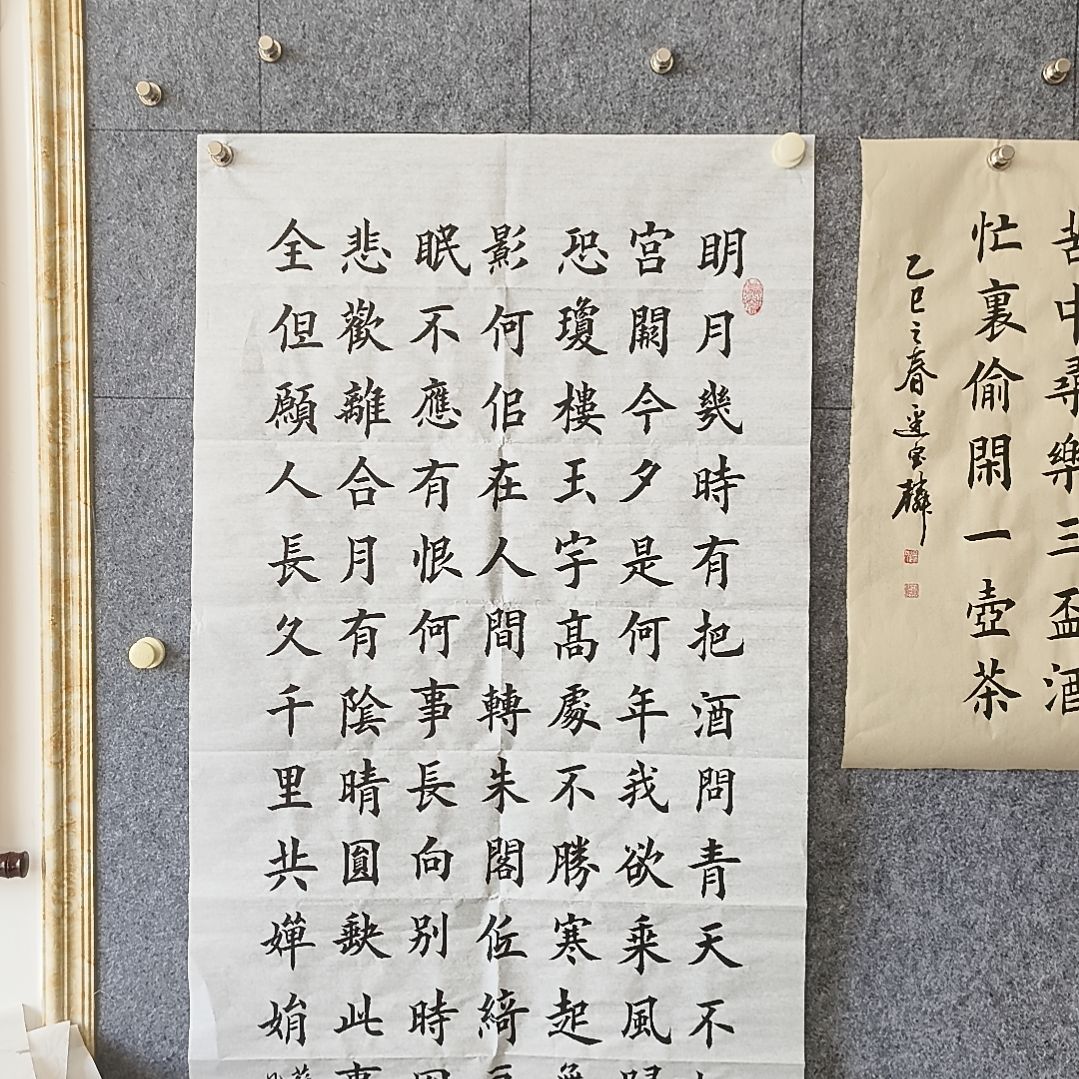 明月幾時有把酒問青天不
宮闕今夕是何年我欲乘風歸
恐瓊樓玉宇高處不勝寒起舞
影何侣在人間轉朱閣低綺戶
眠不應有恨何事長向别時圓
悲歡離合月有陰晴圓缺此事
全但願人長久千里共嬋娟
苦中尋樂三盃酒
忙裏偷閑一壺茶
乙巳之春